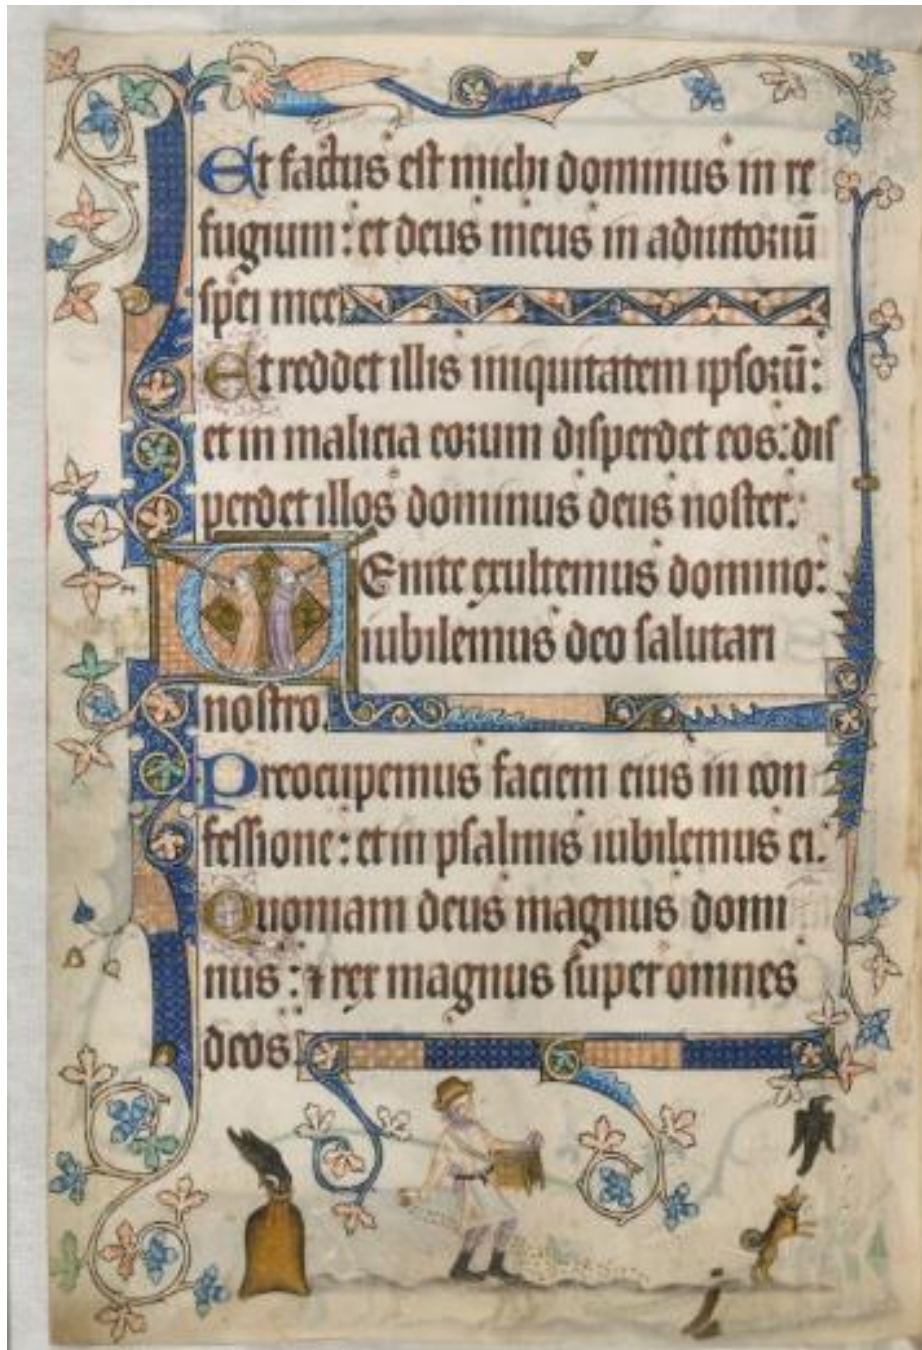 Et factus est michi dominus in re
fugium: et deus meus in adiutoriū
spei mee
Et reddet illis iniquitatem ipsorū:
et in malicia eorum disperdet eos: dis
perdet illos dominus deus noster.
VEnite exultemus domino:
iubilemus deo salutari
nostro.
Preocupemus faciem eius in con
fessione: et in psalmis iubilemus ei.
Quoniam deus magnus domi
nus: ⁊ rex magnus super omnes
deos.